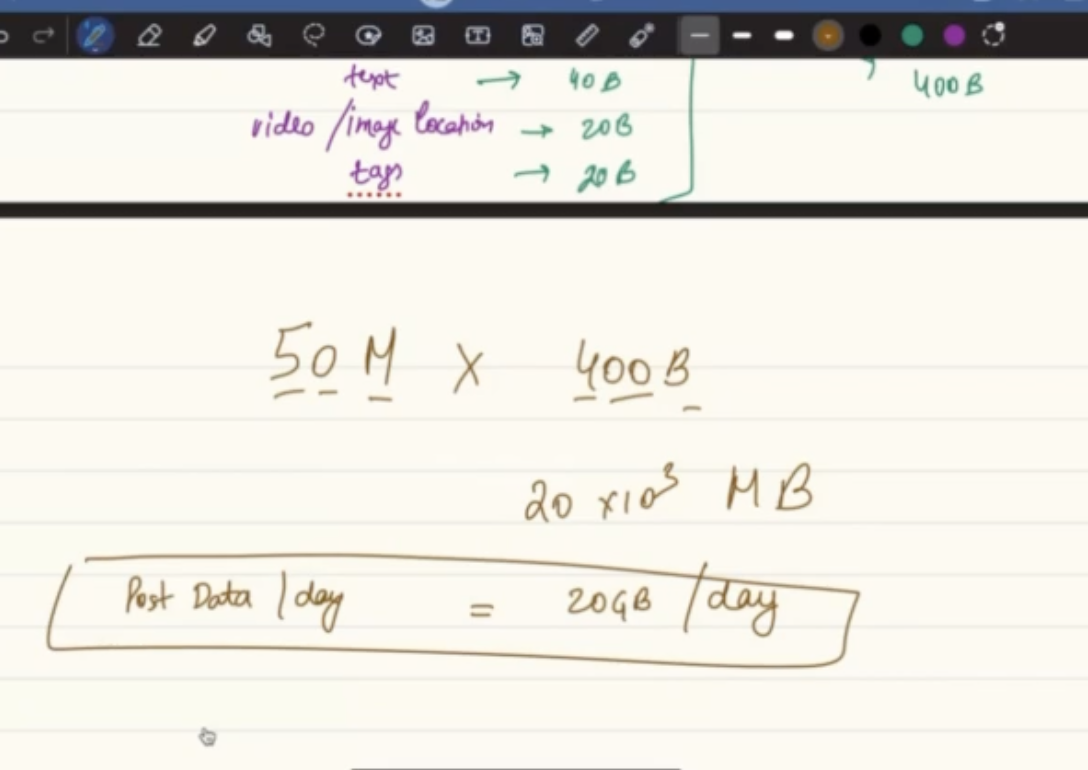 text → 40B
400B
video /image location → 20B
tags → 20B
50 M X 400B
20 x10³ MB
Post Data / day = 20GB / day